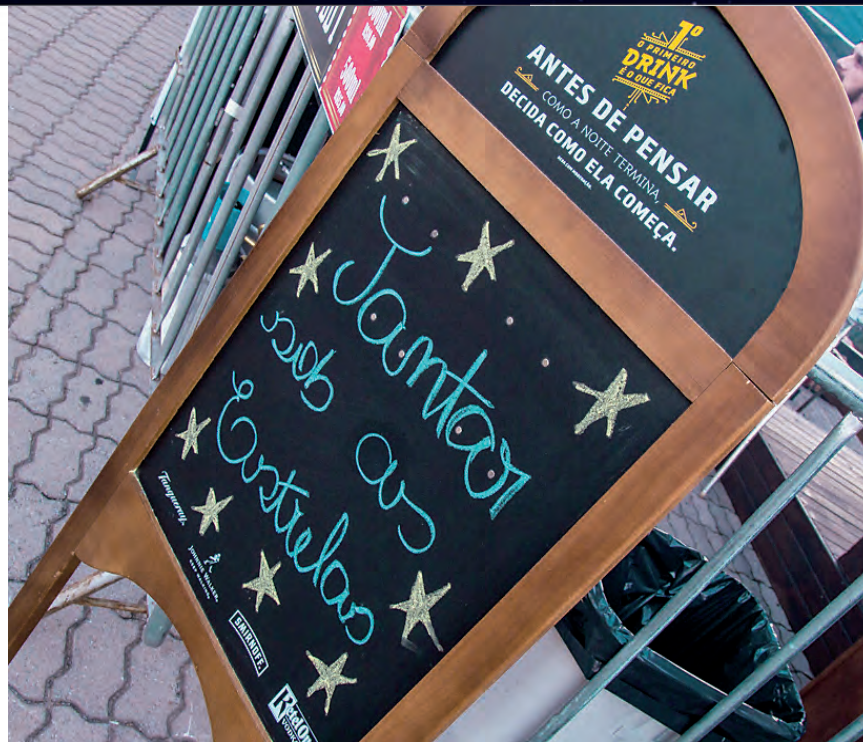 1º
O PRIMEIRO
DRINK
É O QUE FICA
ANTES DE PENSAR
COMO A NOITE TERMINA,
DECIDA COMO ELA COMEÇA.
Jantar
sob as
Estrelas
Tanqueray.
JOHNNIE WALKER.
SMIRNOFF.
Ketel One
VODKA
500ml